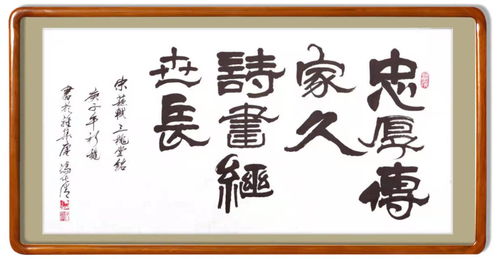 忠厚傳
家久
詩書繼
世長
宋蘇軾三槐堂銘
庚子年
書於